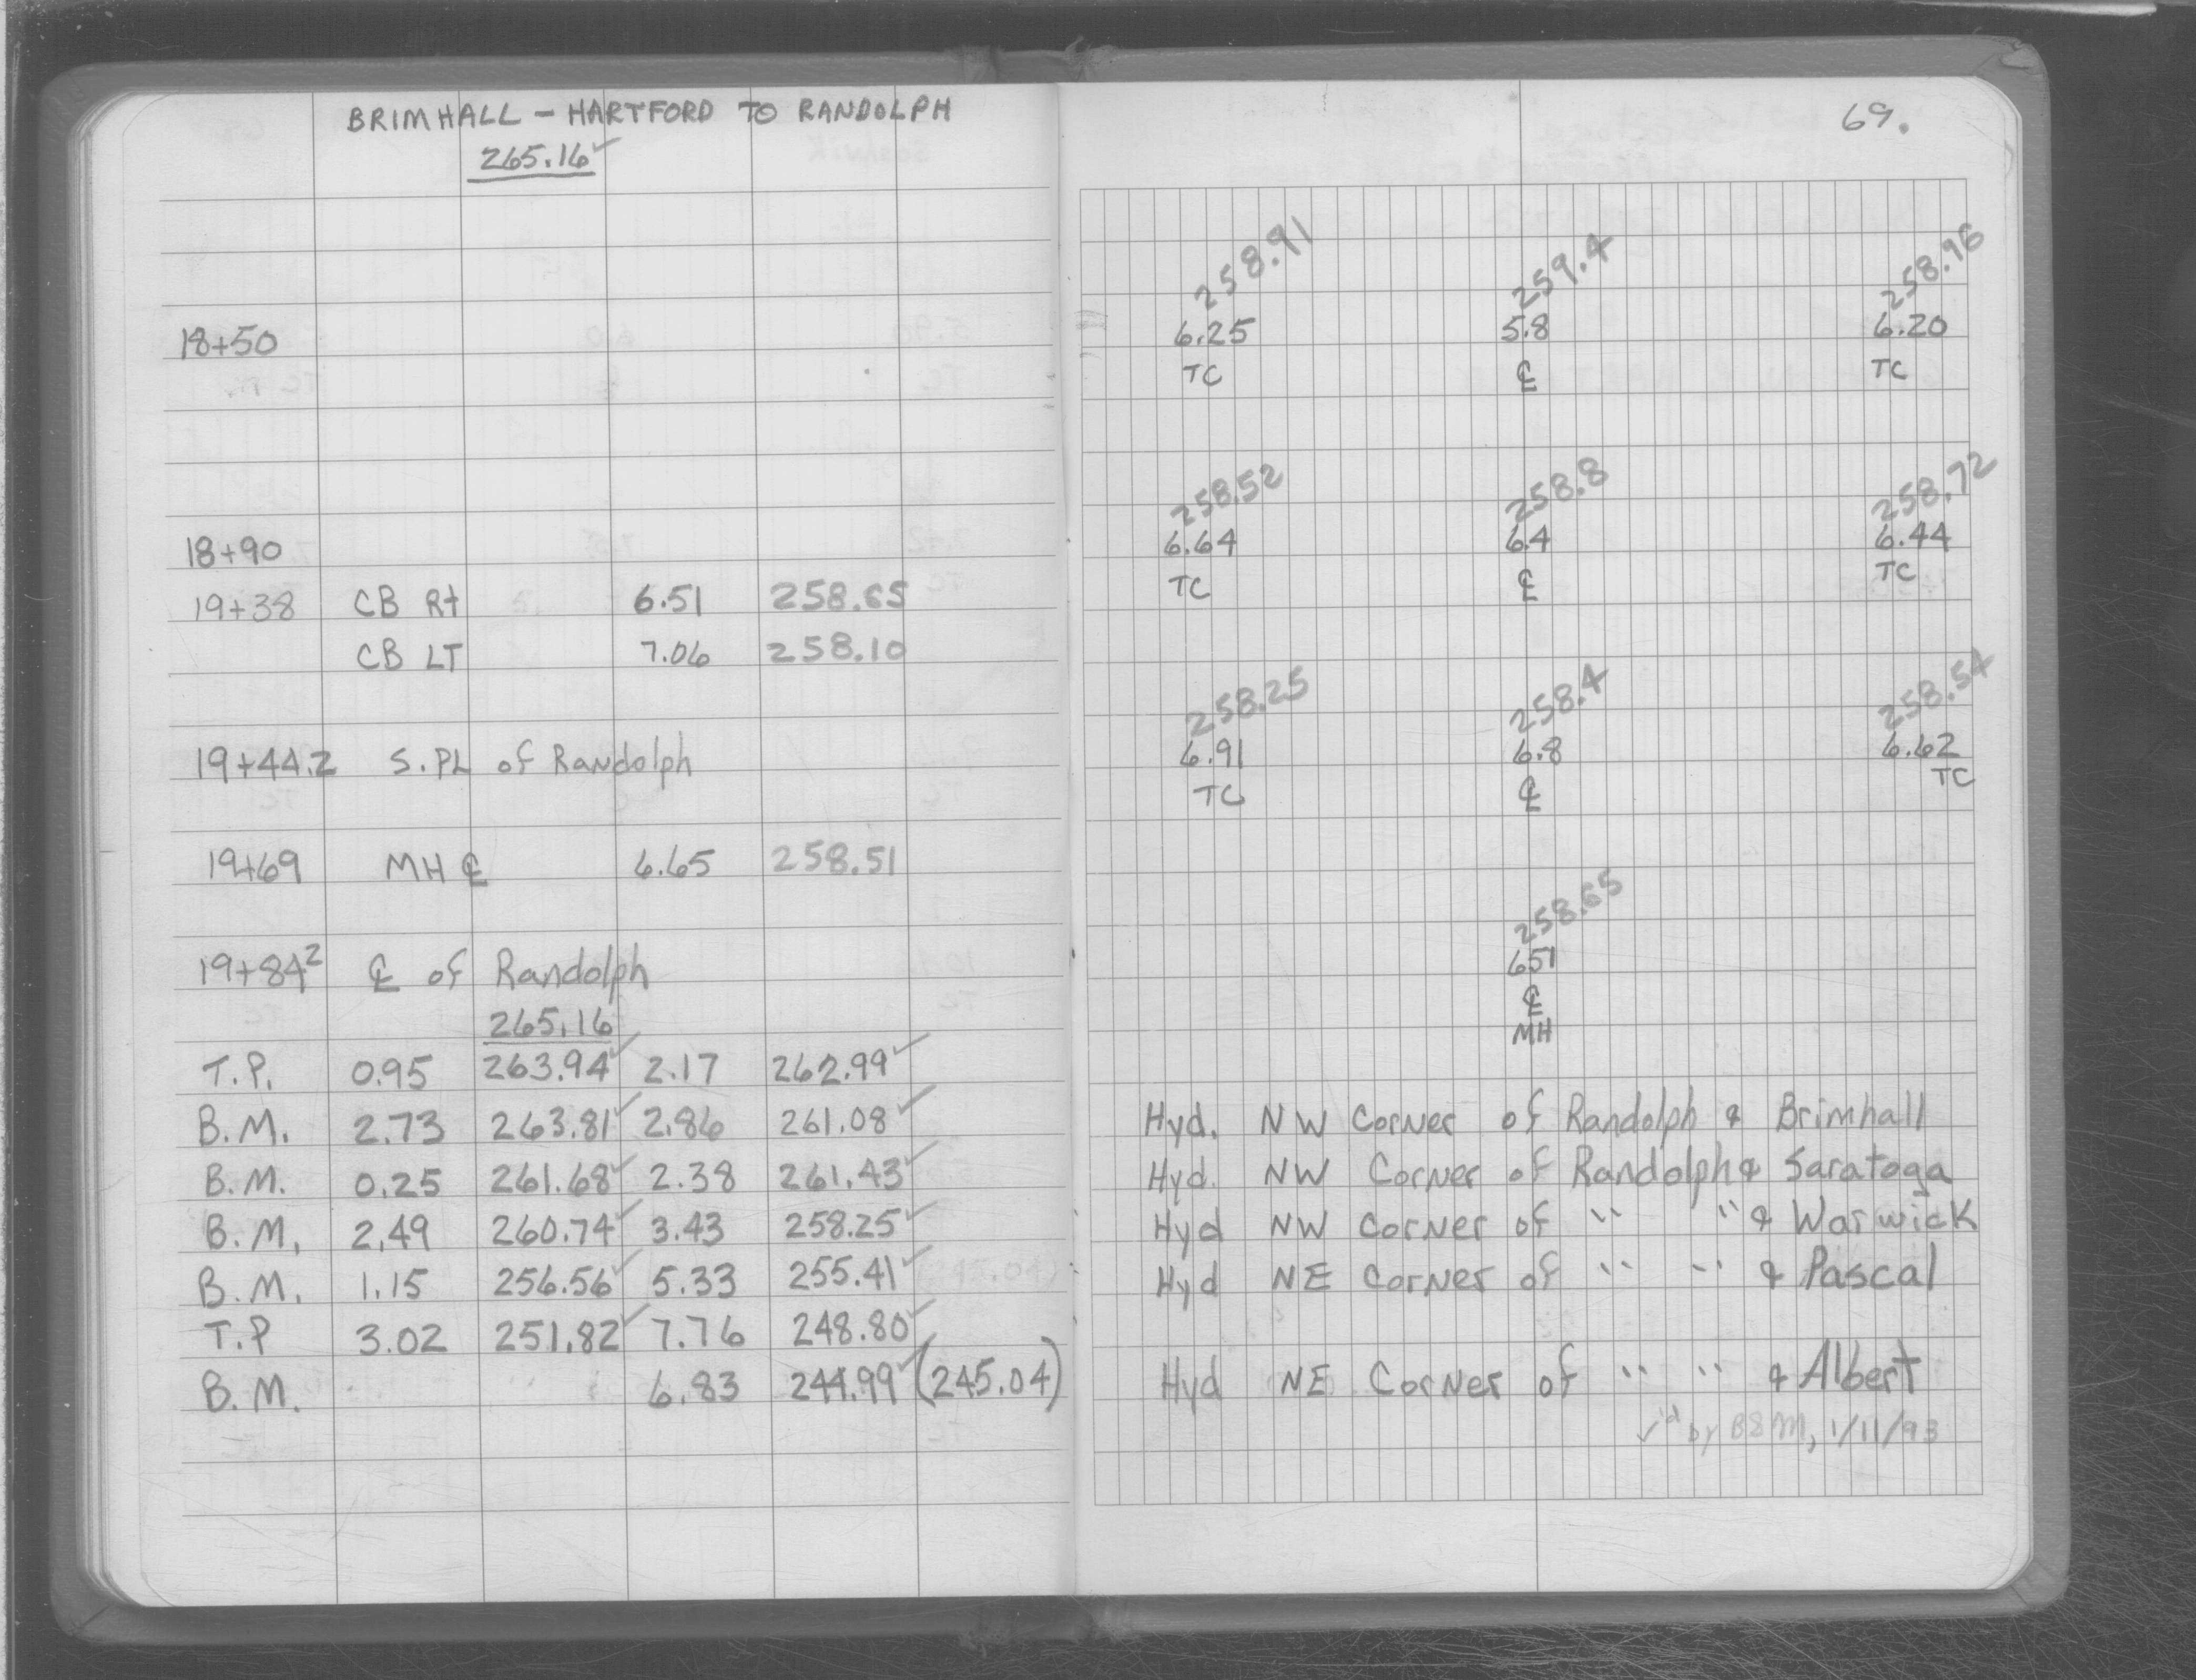 BRIMHALL - HARTFORD TO RANDOLPH
265.16 ✓
18+50
18+90
19+38 CB Rt 6.51 258.65
CB LT 7.06 258.10
19+44.2 S. PL of Randolph
19+69 MH ℄ 6.65 258.51
19+84² ℄ of Randolph
265.16
T.P. 0.95 263.94 ✓ 2.17 262.99 ✓
B.M. 2.73 263.81 ✓ 2.86 261.08 ✓
B.M. 0.25 261.68 ✓ 2.38 261.43 ✓
B.M. 2.49 260.74 ✓ 3.43 258.25 ✓
B.M. 1.15 256.56 ✓ 5.33 255.41 ✓
T.P 3.02 251.82 ✓ 7.76 248.80 ✓
B.M. 6.83 244.99 ✓ (245.04)
69.
258.91 259.4 258.96
6.25 5.8 6.20
TC ℄ TC
258.52 258.8 258.72
6.64 6.4 6.44
TC ℄ TC
258.25 258.4 258.54
6.91 6.8 6.62
TC ℄ TC
258.65
651
℄
MH
Hyd. NW Corner of Randolph & Brimhall
Hyd. NW Corner of Randolph & Saratoga
Hyd NW Corner of " " & Warwick
Hyd NE Corner of " " & Pascal
Hyd NE Corner of " " & Albert
✓'d by BSM, 1/11/93